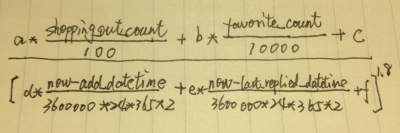 a* shopping_out_count / 100 + b* favorite_count / 10000 + c
[ d* now-add_datetime / 3600000*24*365*2 + e* now-last_replied_datetime / 3600000*24*365*2 + f ]^1.8